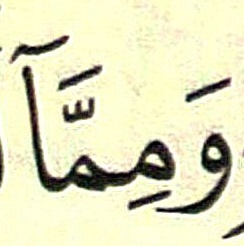 وَمِمَّآ